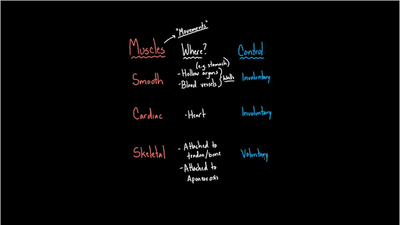 "Movements"
Muscles Where? Control
(e.g. stomach)
Smooth - Hollow organs } Walls Involuntary
- Blood vessels
Cardiac - Heart Involuntary
Skeletal - Attached to Voluntary
tendon/bone
- Attached to
Aponeurosis